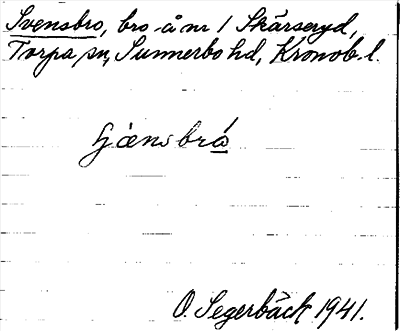 Svensbro, bro å nr 1 Skärseryd,
Torpa sn, Sunnerbo hd, Kronob. l.
fjænsbró
O. Segerbäck 1941.